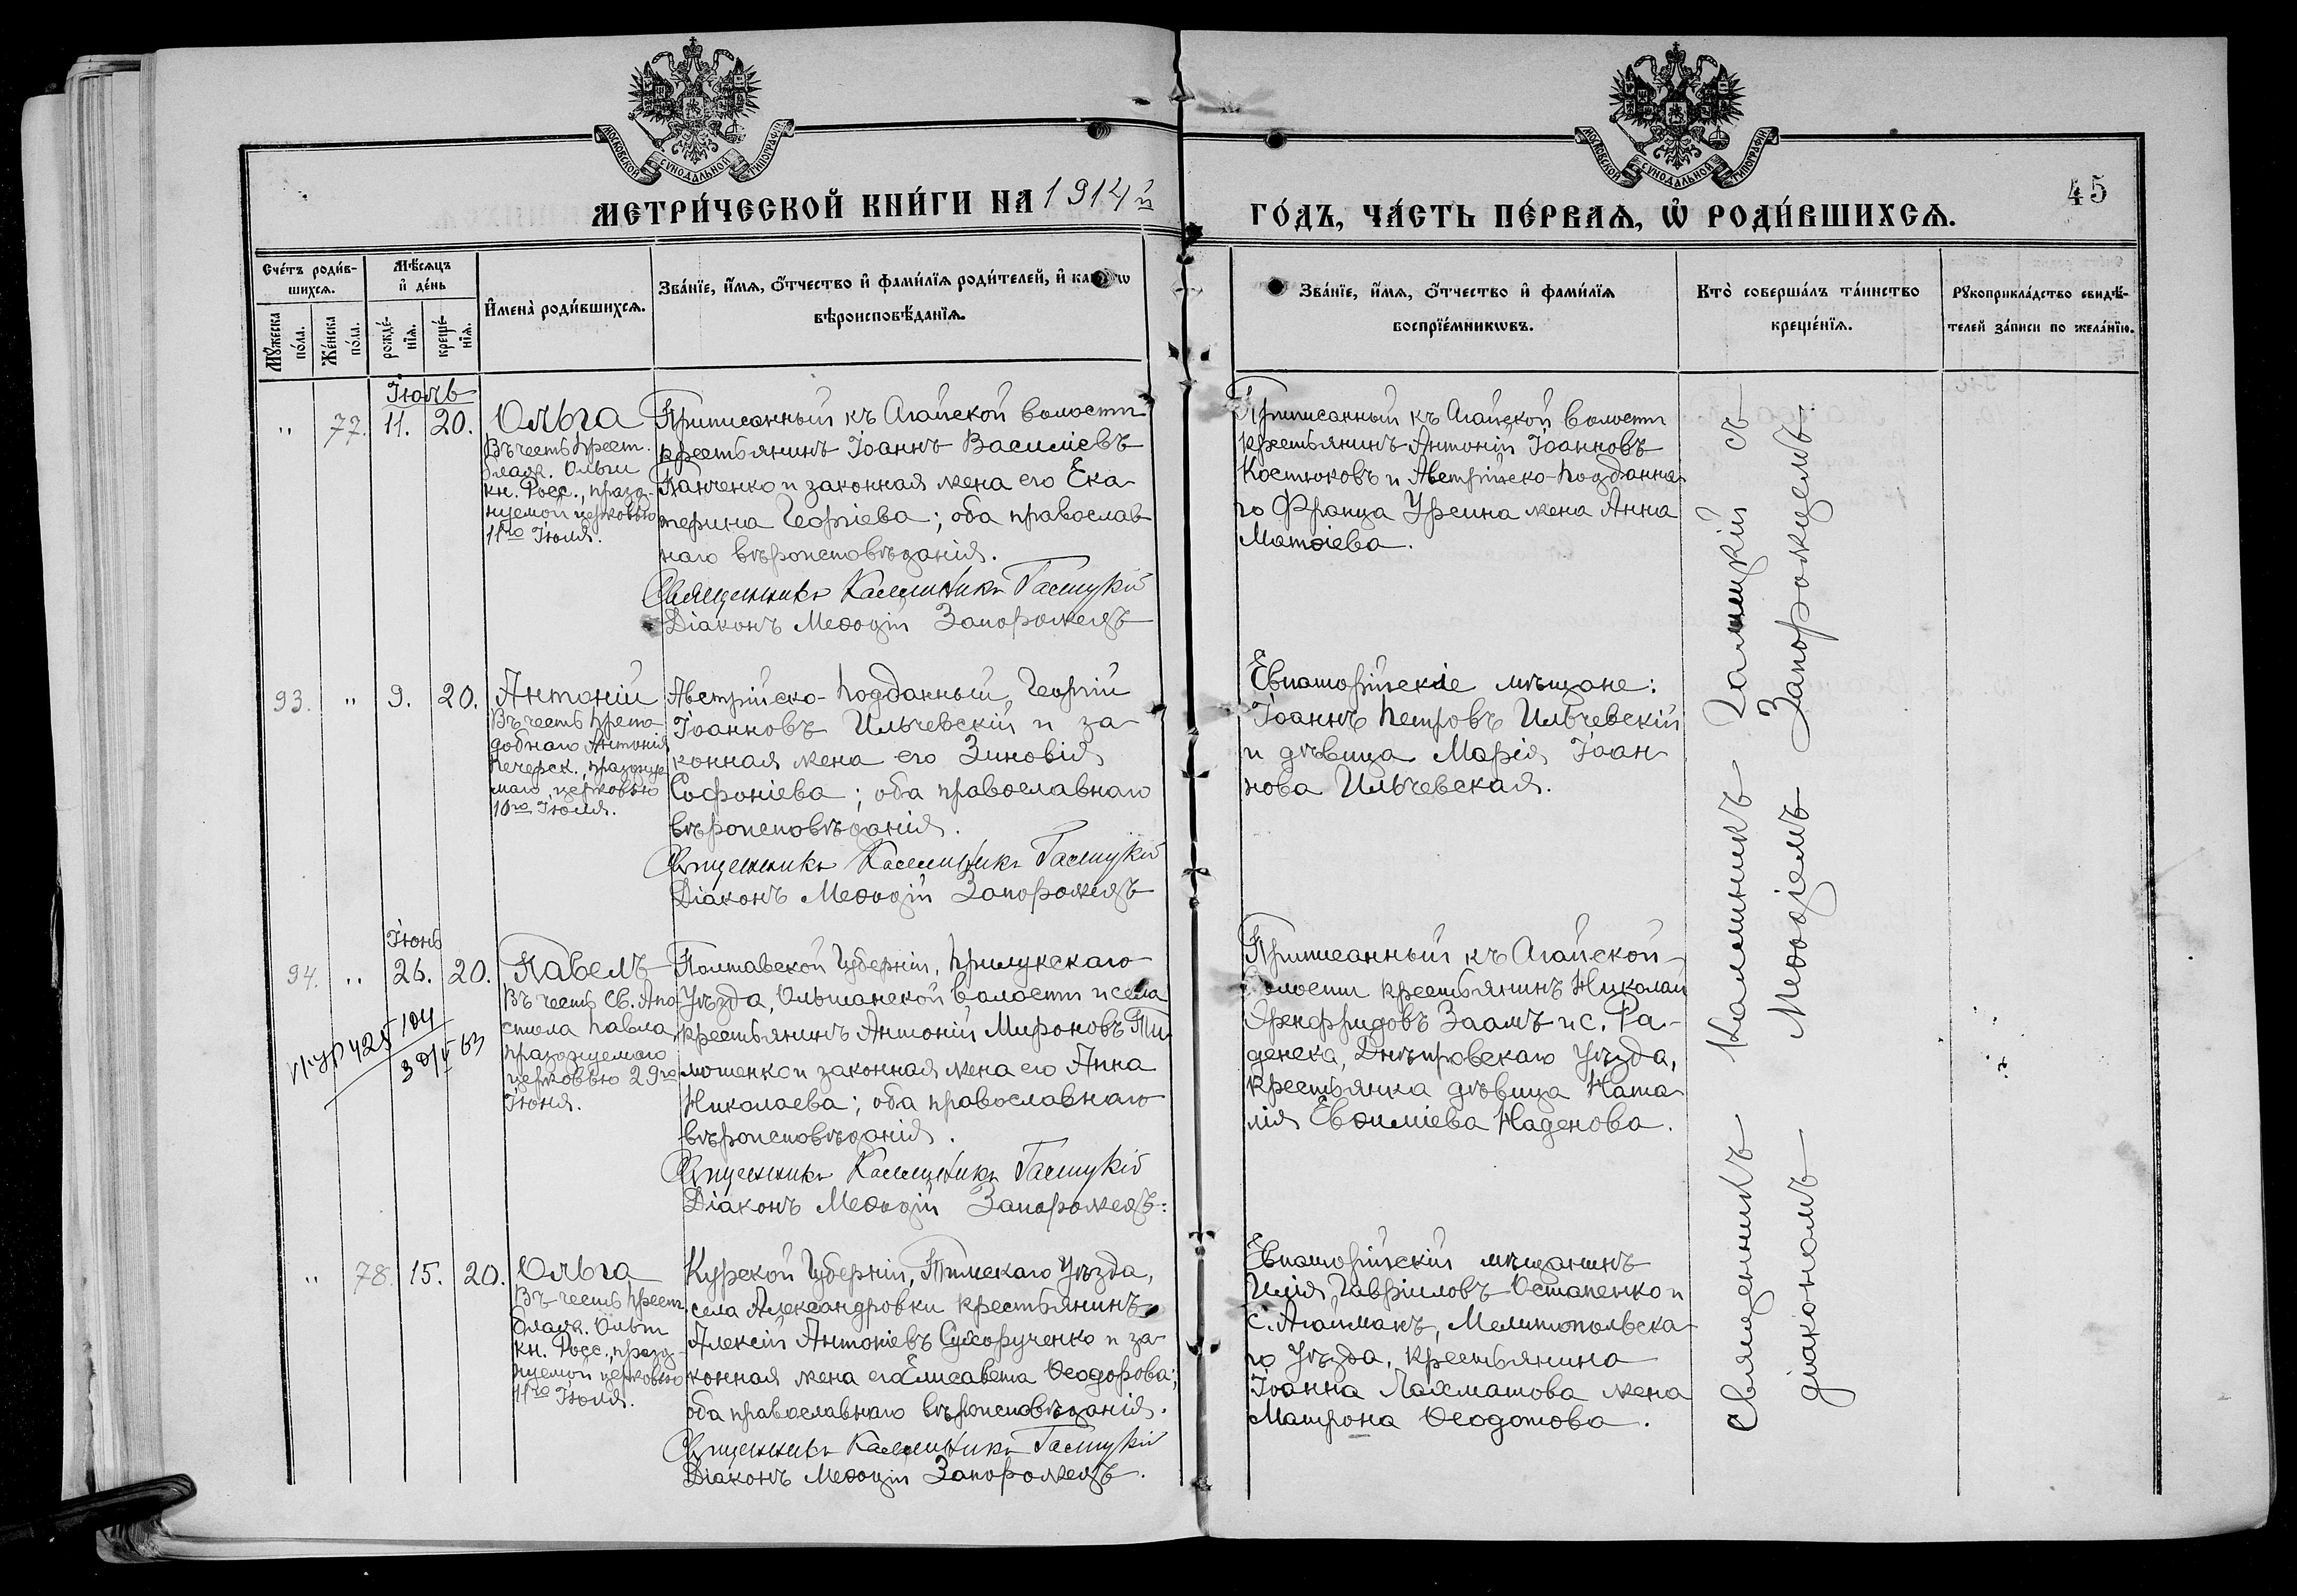 МОСКОВСКОЙ СУНОДАЛЬНОЙ ТИПОГРАФІИ
МОСКОВСКОЙ СУНОДАЛЬНОЙ ТИПОГРАФІИ
МЕТРИ́ЧЕСКОЙ КНИ́ГИ НА 1914й
ГО́ДЪ, ЧА́СТЬ ПЕ́РВАѦ, Ѡ҆ РОДИ́ВШИХСѦ.
45
Сче́тъ роди́в-
шихсѧ.
Мꙋ́жеска по́ла.
Же́нска по́ла.
Мѣ́сѧцъ
и҆ де́нь
рожде́-
нїѧ.
креще́-
нїѧ.
И҆мена̀ роди́вшихсѧ.
Зва́нїе, и҆́мѧ, ѻ҆́тчество и҆ фами́лїѧ роди́телей, и҆ како́гѡ
вѣроисповѣ́данїѧ.
Зва́нїе, и҆́мѧ, ѻ҆́тчество и҆ фами́лїѧ
воспрїе́мникѡвъ.
Кто̀ соверша́лъ та́инство
креще́нїѧ.
Рꙋкоприкла́дство свидѣ́-
телей за́писи по жела́нїю.
Іюль
" 77. 11. 20.
Ольга
Въ честь прест.
благв. Ольги
кн. Росс., празд-
нуемой церковью
11го Іюля.
Приписанный къ Агайской волости
крестьянинъ Іоаннъ Василіевъ
Панченко и законная жена его Ека-
терина Георгіева; оба православ
наго вѣроисповѣданія.
Священникъ Каллиникъ Галицкій
Діаконъ Меѳодій Запорожецъ
Приписанный къ Агайской волости
крестьянинъ Антоній Іоанновъ
Костюковъ и Австрійско-подданна-
го Франца Урсина жена Анна
Матѳіева.
93. " 9. 20.
Антоній
Въ честь препо-
добнаго Антонія
Печерск., празднуе
маго церковью
10го Іюля.
Австрійско-подданный Георгій
Іоанновъ Ильчевскій и за-
конная жена его Зиновія
Софоніева; оба православнаго
вѣроисповѣданія.
Священникъ Каллиникъ Галицкій
Діаконъ Меѳодій Запорожецъ
Евпаторійскіе мѣщане:
Іоаннъ Петровъ Ильчевскій
и дѣвица Марія Іоан-
нова Ильчевская.
Іюнь
94. " 26. 20.
Павелъ
Въ честь Св. Апо-
стола Павла,
празднуемаго
церковью 29го
Іюня.
425 104
30/V 63
Полтавской Губерніи, Прилукскаго
Уѣзда, Ольшанской волости и села
крестьянинъ Антоній Мироновъ Ти-
мошенко и законная жена его Анна
Николаева; оба православнаго
вѣроисповѣданія.
Священникъ Каллиникъ Галицкій
Діаконъ Меѳодій Запорожецъ:
Приписанный къ Агайской
волости крестьянинъ Николай
Заамъ и с. Ра-
денска, Днѣпровскаго Уѣзда,
крестьянка дѣвица Ната-
лія Евѳиміева Наденова.
" 78. 15. 20.
Ольга
Въ честь прест.
благв. Ольги
кн. Росс., празд-
нуемой церковью
11го Іюля.
Курской Губерніи, Тимскаго Уѣзда,
села Александровки крестьянинъ
Алексій Антоніевъ Сухорученко и за-
конная жена его Елисавета Ѳеодорова;
оба православнаго вѣроисповѣданія.
Священникъ Каллиникъ Галицкій
Діаконъ Меѳодій Запорожецъ.
Евпаторійскій мѣщанинъ
Илія Гавріиловъ Остапенко и
с. Агайманъ, Мелитопольска-
го Уѣзда, крестьянина
Іоанна Лахматова жена
Матрона Ѳеодотова.
Священникъ Каллиникъ Галицкій съ
діакономъ Меѳодіемъ Запорожцемъ.